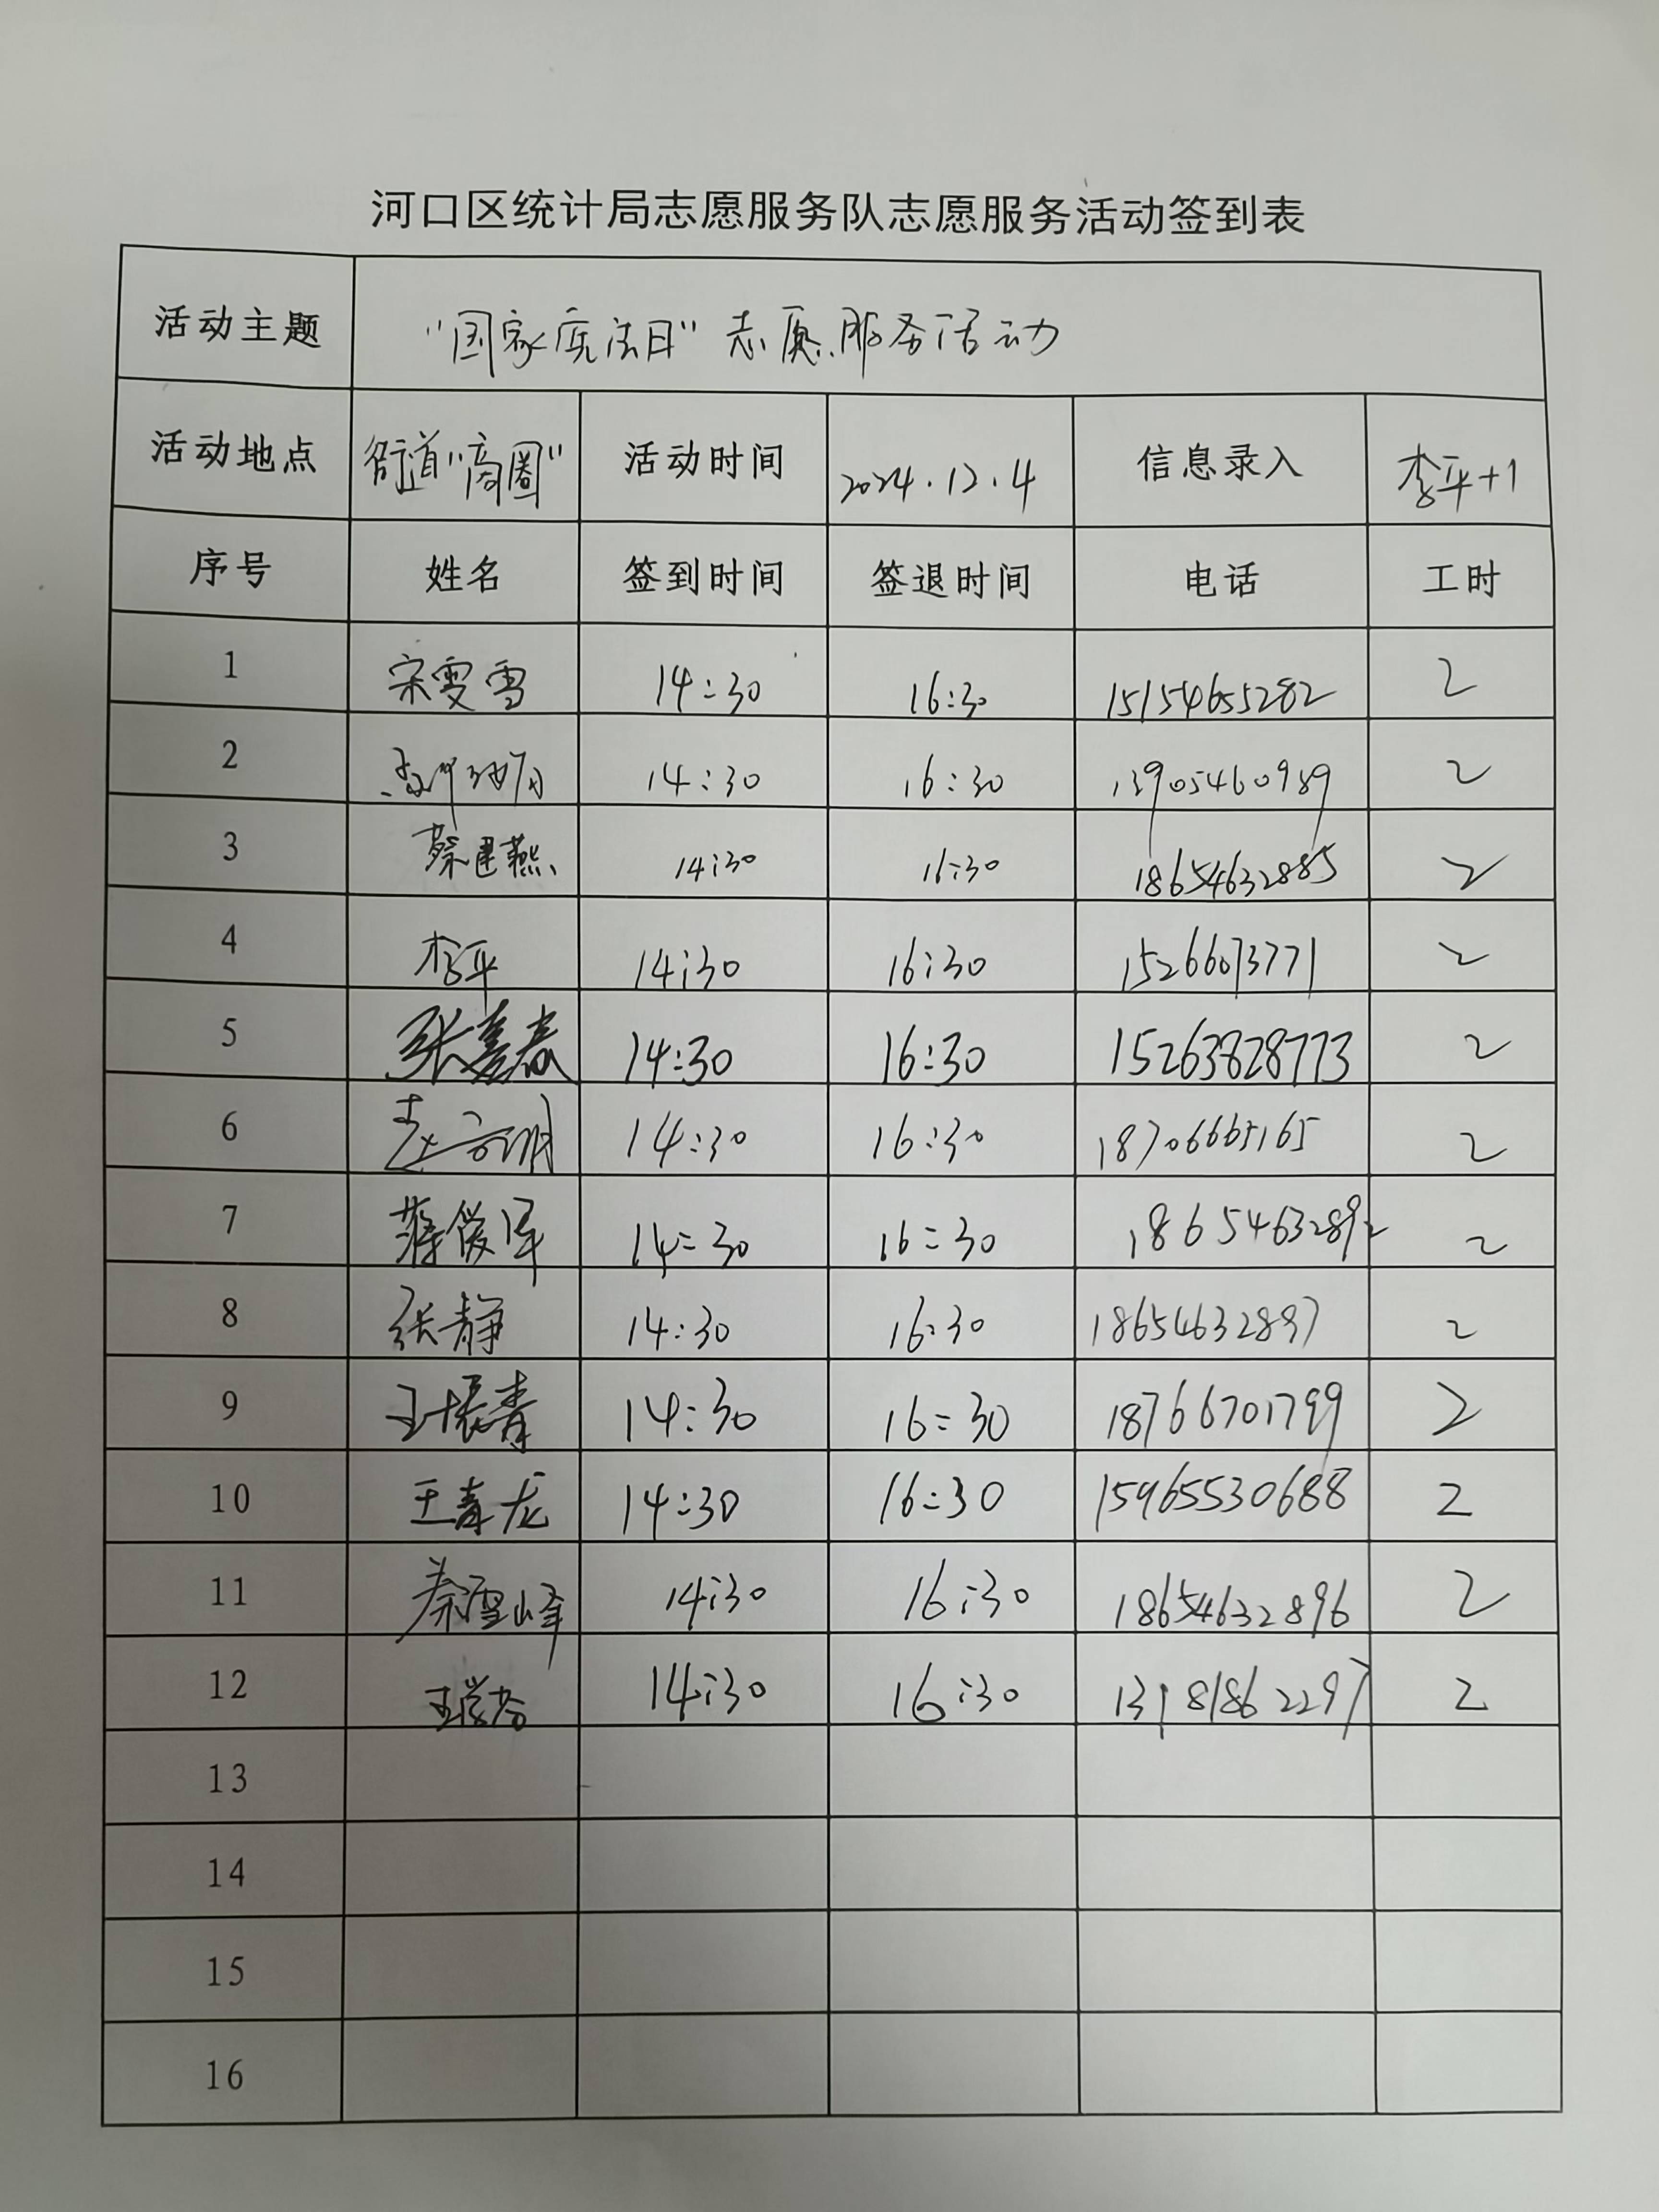 河口区统计局志愿服务队志愿服务活动签到表
活动主题 “国家宪法日”志愿服务活动
活动地点 街道“商圈” 活动时间 2024.12.4 信息录入 李平+1
序号 姓名 签到时间 签退时间 电话 工时
1 宋雯雪 14:30 16:30 15154655282 2
2 14:30 16:30 13905460989 2
3 蔡建燕 14:30 16:30 18654632885 2
4 李平 14:30 16:30 15266073771 2
5 张喜春 14:30 16:30 15263828773 2
6 14:30 16:30 18706665165 2
7 蒋俊军 14:30 16:30 18654632892 2
8 张静 14:30 16:30 18654632897 2
9 王振青 14:30 16:30 18766701799 2
10 王青龙 14:30 16:30 15965530688 2
11 秦雪峰 14:30 16:30 18654632896 2
12 14:30 16:30 13181862297 2
13
14
15
16